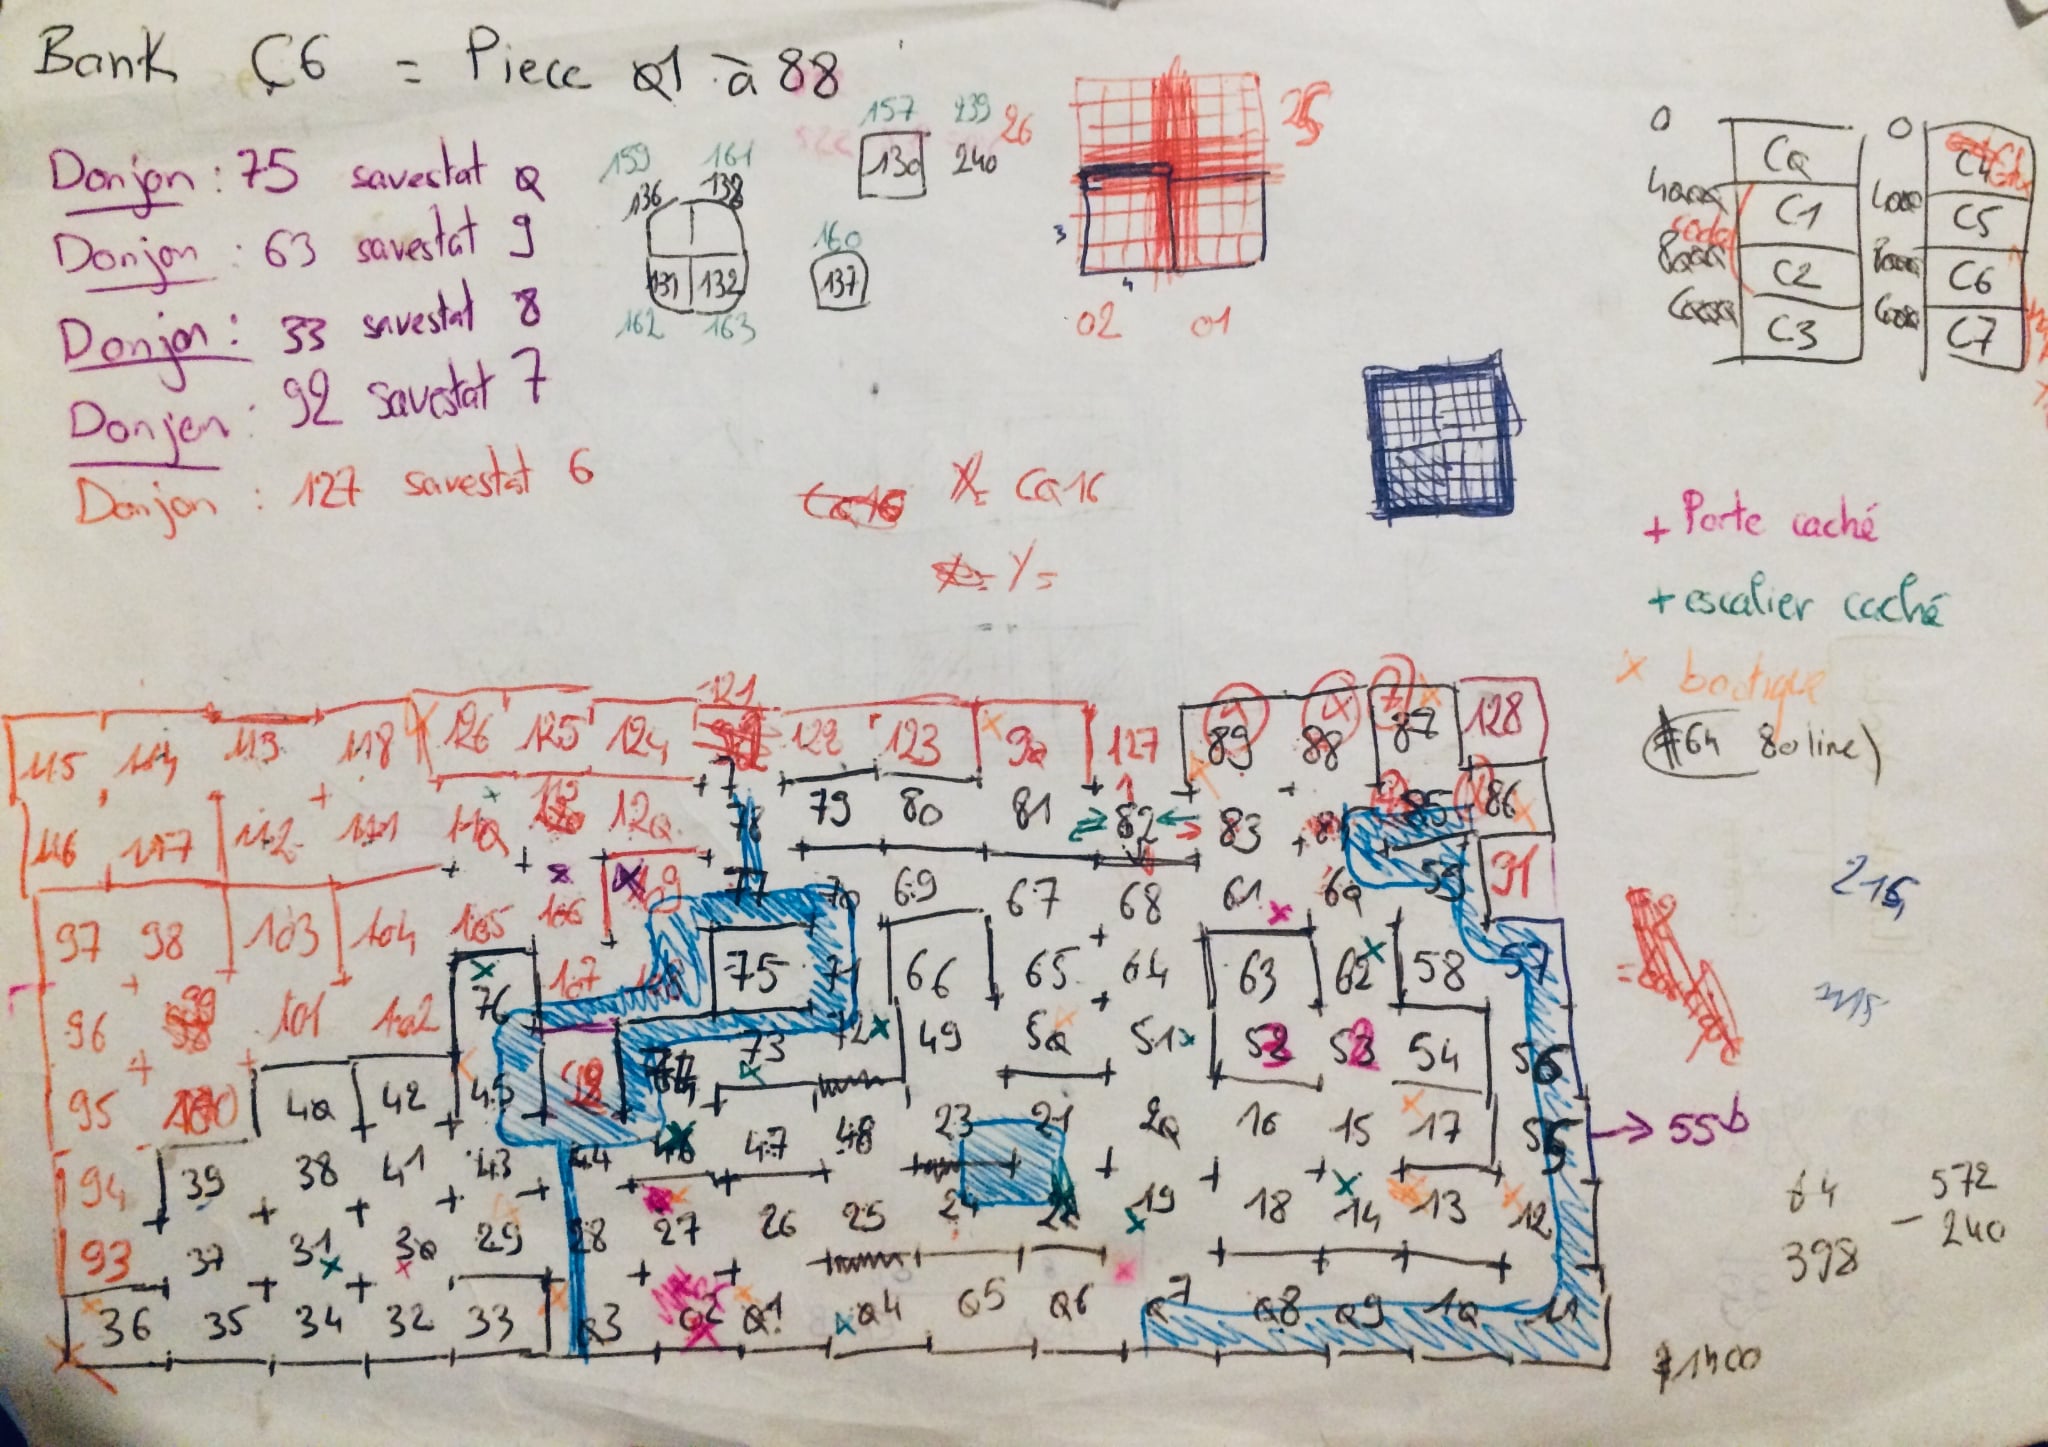 Bank C6 = Piece 01 à 88
Donjon : 75 savestat 0
Donjon : 63 savestat 9
Donjon : 33 savestat 8
Donjon : 92 savestat 7
Donjon : 127 savestat 6
159 161
136 138
131 132
162 163
157 239
130 240
160
137
26 25
3
4
02 01
0 C0
4000 C1
8000 C2
C000 C3
0 C4
4000 C5
8000 C6
C000 C7
X= C016
Y=
+ Porte caché
+ escalier caché
x boutique
$64 80 line)
121
115 114 113 118 126 125 124 122 123 90 127 89 88 87 128
116 117 112 111 110 120 78 79 80 81 82 83 85 86
109 77 70 69 67 68 61 60 59 91
97 98 103 104 105 106
107 108 75 71 66 65 64 63 62 58 57
96 99 101 102 76
73 72 49 50 51 52 53 54 56
95 100 40 42 45 74
46 47 48 23 21 20 16 15 17 55 → 55b
94 39 38 41 43 44
93 37 31 30 29 28 27 26 25 24 22 19 18 14 13 12
36 35 34 32 33 03 02 01 04 05 06 07 08 09 10 11
216
64 572
398 - 240
$1400